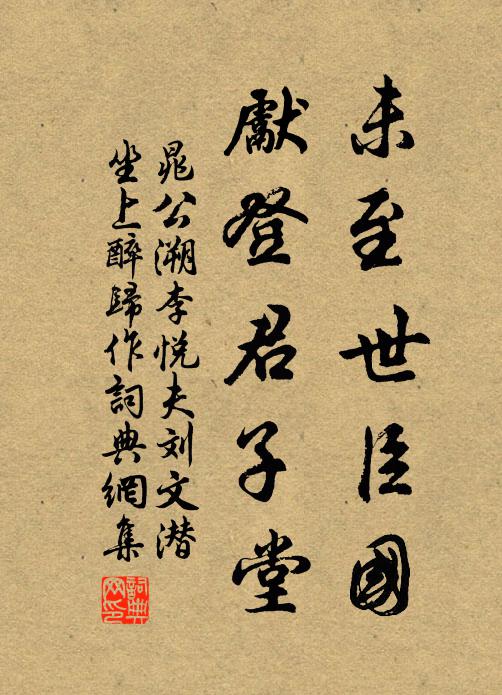 未至世臣國
獻登君子堂
晁公溯李悦夫刘文潜
坐上醉歸作詞典網集
詞典网印